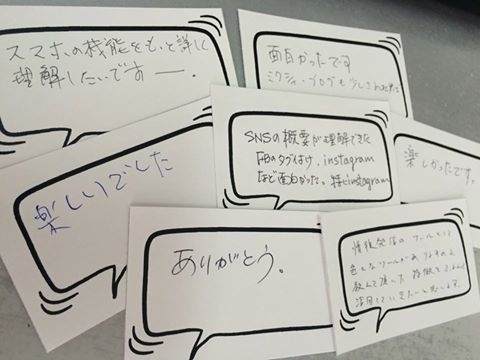 スマホの機能をもっと詳しく
理解したいですー。
面白かったです
ミクシィ・ブログも少しされ
楽しいでした
SNSの概要が理解できた
FBのタグ付け、instagram
など面白かった。特にinstagram
楽しかったです。
ありがとう。
情報発信のツールとして
色んなツールがあり
教えて頂いた 特徴を
活用していきたいと思います。